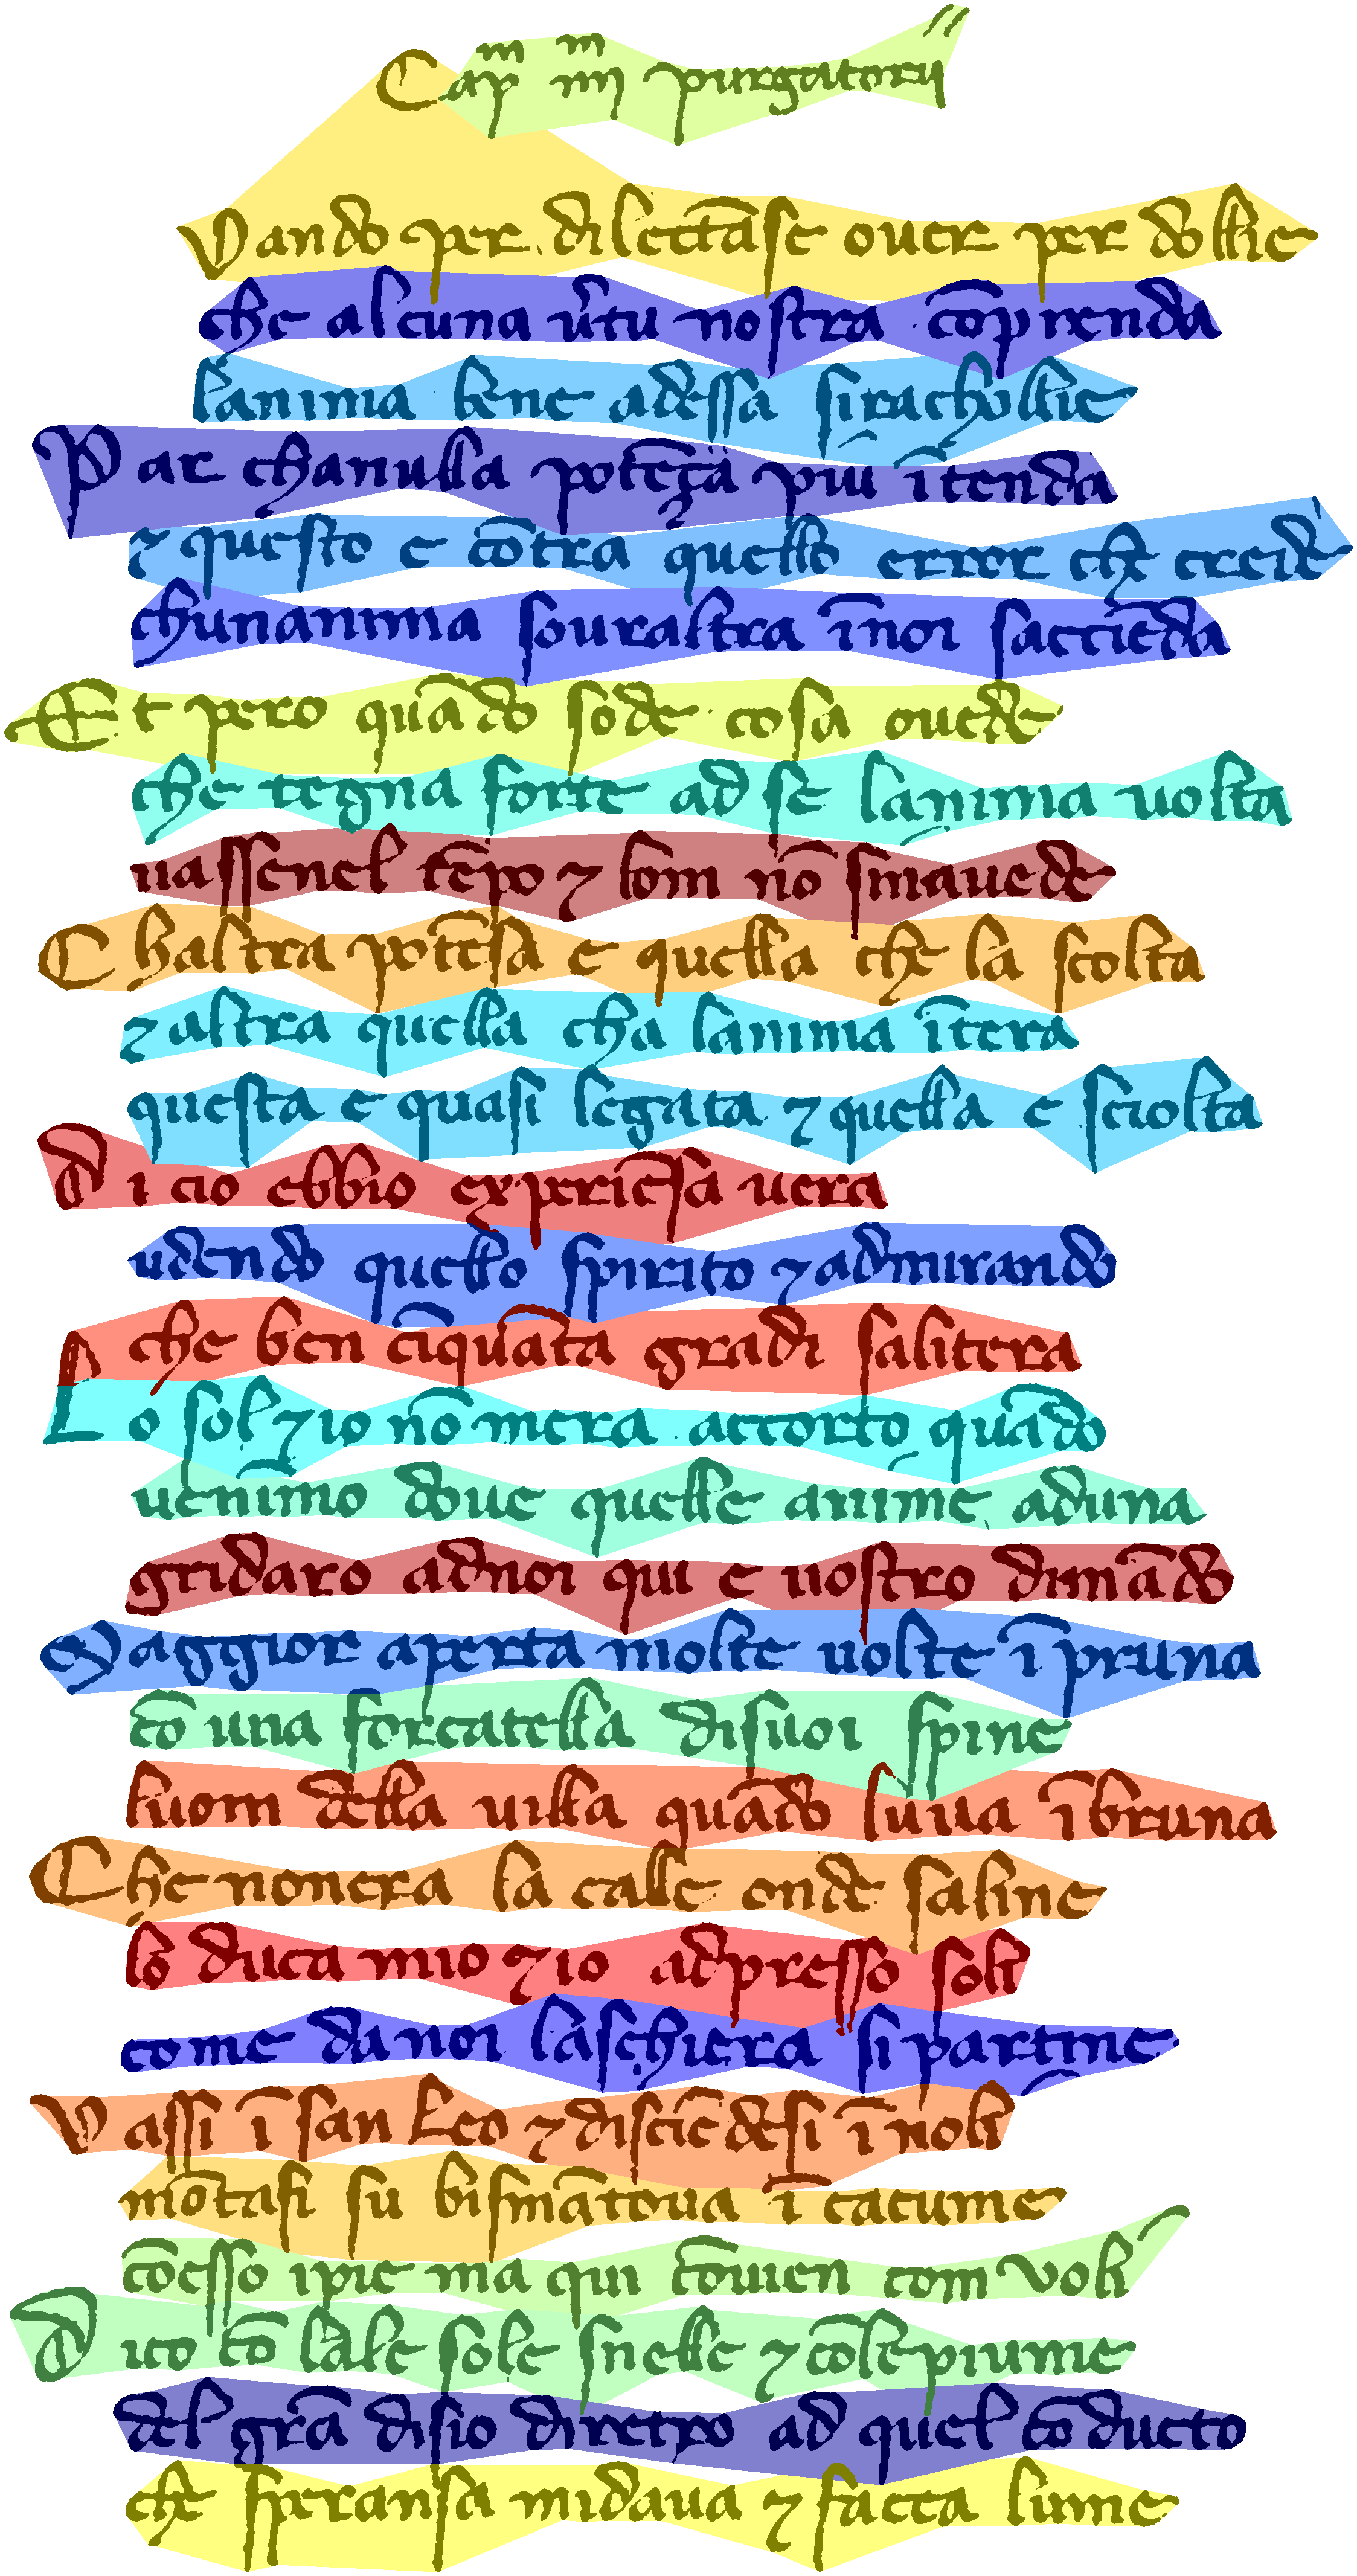 Capm iiijm purgatorij
Vando per dilectāse ouer per dollie
che alcuna v̄tu nostra cōprenda
lanima bene adessa siracħollie
Par chanulla potēça piu ītenda
⁊ questo e cōtra quello error che crede
chunanima souraltra īnoi saccīeda
Et pero quādo sode cosa ouede
che tegna forte ad se lanima uolta
uassenel tēpo ⁊ lom nō smauede
Chaltra potēsa e quella che la scolta
⁊ altra quella cha lanima ītera
questa e quasi legata ⁊ quella e sciolta
Di cio ebbio experiēsa uera
udendo quello spirito ⁊ admirando
che ben cīquāta gradi salitera
Lo sol ⁊ io nō mera accorto quādo
uenimo doue quelle anime aduna
gridaro adnoi qui e uostro dimādo
Maggior aperta molte uolte īpruna
cō una forcatella disuoi spine
luom della uilla quādo luua ībruna
Che nonera la calle onde saline
lo duca mio ⁊ io adpresso soli
come danoi laschiera si partine
Vassi ī san Leo ⁊ discīedesi ī noli
mōtasi su bismātoua ī cacume
cōesso ipie ma qui cōuien com voli
Dico cō lale sole snelle ⁊ cōlepiume
del grā disio diretro ad quel cōducto
che speransa midaua ⁊ facea lume